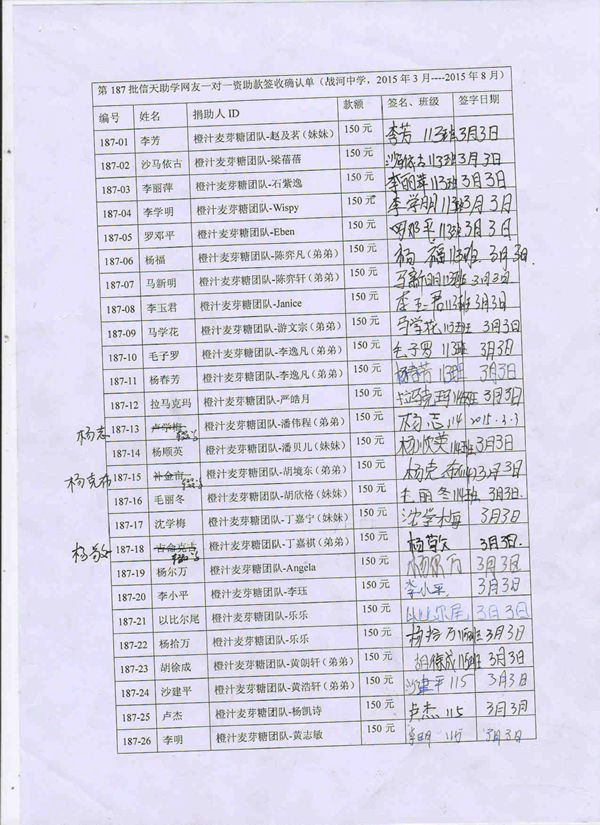 第187批信天助学网友一对一资助款签收确认单（战河中学，2015年3月----2015年8月）
编号 姓名 捐助人ID 款额 签名、班级 签字日期
187-01 李芳 橙汁麦芽糖团队-赵及茗（妹妹） 150元 李芳 113班 3月3日
187-02 沙马依古 橙汁麦芽糖团队-梁蓓蓓 150元 沙马依古 113班 3月3日
187-03 李丽萍 橙汁麦芽糖团队-石紫逸 150元 李丽萍 113班 3月3日
187-04 李学明 橙汁麦芽糖团队-Wispy 150元 李学明 113班 3月3日
187-05 罗邓平 橙汁麦芽糖团队-Eben 150元 罗邓平 113班 3月3日
187-06 杨福 橙汁麦芽糖团队-陈弈凡（弟弟） 150元 杨福 113班 3月3日.
187-07 马新明 橙汁麦芽糖团队-陈弈轩（弟弟） 150元 马新明 113班 3月3日
187-08 李玉君 橙汁麦芽糖团队-Janice 150元 李玉君 113班 3月3日
187-09 马学花 橙汁麦芽糖团队-游文宗（弟弟） 150元 马学花 113班 3月3日
187-10 毛子罗 橙汁麦芽糖团队-李逸凡（弟弟） 150元 毛子罗 113班 3月3日
187-11 杨春芳 橙汁麦芽糖团队-李逸凡（弟弟） 150元 杨春芳 113班 3月3日
187-12 拉马克玛 橙汁麦芽糖团队-严皓月 150元 拉马克玛 114班 3月3日
杨志 187-13 卢学梅 橙汁麦芽糖团队-潘伟程（弟弟） 150元 杨志 114 2015.3.3
187-14 杨顺英 橙汁麦芽糖团队-潘贝儿（妹妹） 150元 杨顺英 114班 3月3日
杨克布 187-15 橙汁麦芽糖团队-胡境东（弟弟） 150元 杨克布 114 3月3日
187-16 毛丽冬 橙汁麦芽糖团队-胡欣格（妹妹） 150元 毛丽冬 114班 3月3日.
187-17 沈学梅 橙汁麦芽糖团队-丁嘉宁（妹妹） 150元 沈学梅 3月3日
杨敬 187-18 橙汁麦芽糖团队-丁嘉祺（弟弟） 150元 杨敬 3月3日.
187-19 杨尔万 橙汁麦芽糖团队-Angela 150元 杨尔万 3月3日
187-20 李小平 橙汁麦芽糖团队-李珏 150元 李小平 3月3日
187-21 以比尔尾 橙汁麦芽糖团队-乐乐 150元 以比尔尾 3月3日
187-22 杨拾万 橙汁麦芽糖团队-乐乐 150元 杨拾万 115班 3月3日
187-23 胡徐成 橙汁麦芽糖团队-黄朗轩（弟弟） 150元 胡徐成 115班 3月3日
187-24 沙建平 橙汁麦芽糖团队-黄浩轩（弟弟） 150元 沙建平 115 3月3日
187-25 卢杰 橙汁麦芽糖团队-杨凯诗 150元 卢杰 115 3月3日
187-26 李明 橙汁麦芽糖团队-黄志敏 150元 李明 115 3月3日